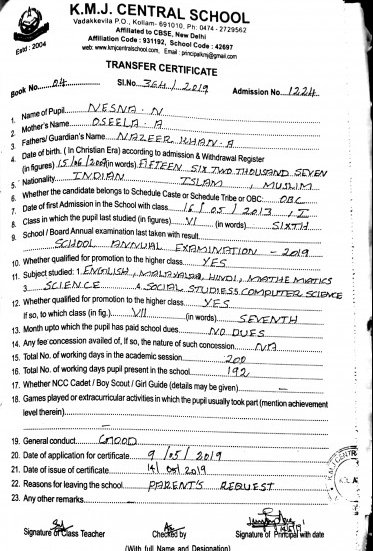 K.M.J. CENTRAL SCHOOL
Vadakkevila P.O., Kollam- 691010, Ph: 0474 - 2729562
Affiliated to CBSE, New Delhi
Affiliation Code : 931192, School Code : 42697
web: www.kmjcentralschool.com, Email : principalkmj@gmail.com
Estd : 2004
TRANSFER CERTIFICATE
Book No. 04 Sl.No. 364/2019 Admission No. 1224
1. Name of Pupil NESNA. N
2. Mother's Name OSEELA. A
3. Fathers/ Guardian's Name NAZEER KHAN. A
4. Date of birth. ( In Christian Era) according to admission & Withdrawal Register
(in figures) 15/06/2007 (in words) FIFTEEN SIX TWO THOUSAND SEVEN
5. Nationality INDIAN ISLAM, MUSLIM
6. Whether the candidate belongs to Schedule Caste or Schedule Tribe or OBC: OBC
7. Date of first Admission in the School with class 16/05/2013, I
8. Class in which the pupil last studied (in figures) VI (in words) SIXTH
9. School / Board Annual examination last taken with result
SCHOOL ANNUAL EXAMINATION - 2019
10. Whether qualified for promotion to the higher class YES
11. Subject studied: 1. ENGLISH, MALAYALAM, HINDI, MATHEMATICS
3. SCIENCE 4. SOCIAL STUDIES 5. COMPUTER SCIENCE
12. Whether qualified for promotion to the higher class YES
If so, to which class (in fig.) VII (in words) SEVENTH
13. Month upto which the pupil has paid school dues NO DUES
14. Any fee concession availed of, If so, the nature of such concession NA
15. Total No. of working days in the academic session 200
16. Total No. of working days pupil present in the school 192
17. Whether NCC Cadet / Boy Scout / Girl Guide (details may be given) -
18. Games played or extracurricular activities in which the pupil usually took part (mention achievement
level therein) -
19. General conduct GOOD
20. Date of application for certificate 9/05/2019
21. Date of issue of certificate 14/05/2019
22. Reasons for leaving the school PARENT'S REQUEST
23. Any other remarks -
K.M.J. CENTR
Signature of Class Teacher Checked by Signature of Principal with date
(With full Name and Designation)